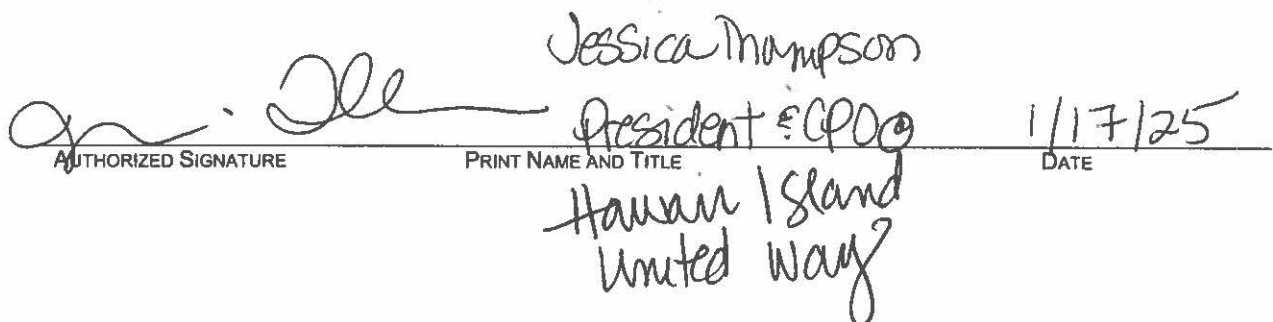 Jessica Thompson
President & CPO @ 1/17/25
AUTHORIZED SIGNATURE PRINT NAME AND TITLE DATE
Hawaii Island
United Way